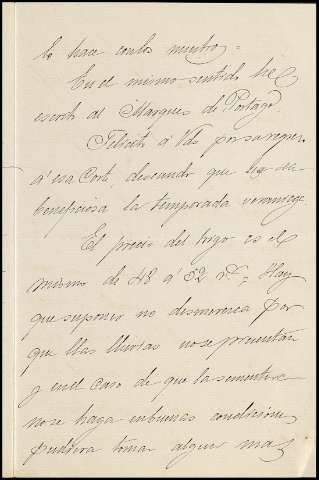 lo hace con los nuestros.
En el mismo sentido he
escrito al Marques de Portago
Felicito á Vds por su regreso
á esa Corte, deseando que les sea
beneficiosa la temporada veraniega
El precio del trigo es el
mismo de 48 á 52 rs; Hay
que suponer no desmerezca por
que llas lluvias no se presentan
y en el caso de que la sementera
no se haga en buenas condiciones
pudiera tomar algun mas